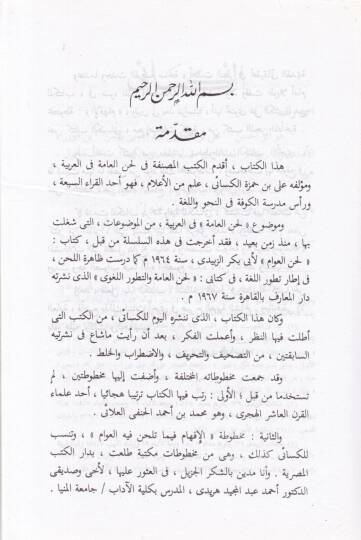 بسم الله الرحمن الرحيم
مقدمة
هذا الكتاب ، أقدم الكتب المصنفة فى لحن العامة فى العربية ،
ومؤلفه على بن حمزة الكسائى ، علم من الأعلام ، فهو أحد القراء السبعة ،
ورأس مدرسة الكوفة فى النحو واللغة .
وموضوع « لحن العامة » فى العربية ، من الموضوعات ، التى شغلت
بها ، منذ زمن بعيد ، فقد أخرجت فى هذه السلسلة من قبل ، كتاب :
« لحن العوام » لأبى بكر الزبيدى ، سنة ١٩٦٤ م كما درست ظاهرة اللحن ،
فى إطار تطور اللغة ، فى كتابى : « لحن العامة والتطور اللغوى » الذى نشرته
دار المعارف بالقاهرة سنة ١٩٦٧ م .
وكان هذا الكتاب ، الذى ننشره اليوم للكسائى ، من الكتب التى
أطلت فيها النظر ، وأعملت الفكر ، بعد أن رأيت ماشاع فى نشرتيه
السابقتين ، من التصحيف والتحريف ، والاضطراب والخلط .
وقد جمعت مخطوطاته المختلفة ، وأضفت إليها مخطوطتين ، لم
تستخدما من قبل ؛ الأولى : رتب فيها الكتاب ترتيبا هجائيا ، أحد علماء
القرن العاشر الهجرى ، وهو محمد بن أحمد الحنفى العلائى .
والثانية : مخطوطة « الإفهام فيما تلحن فيه العوام » ، وتنسب
للكسائى كذلك ، وهى من مخطوطات مكتبة طلعت ، بدار الكتب
المصرية . وأنا مدين بالشكر الجزيل ، فى العثور عليها ، لأخى وصديقى
الدكتور أحمد عبد المجيد هريدى ، المدرس بكلية الآداب / جامعة المنيا .